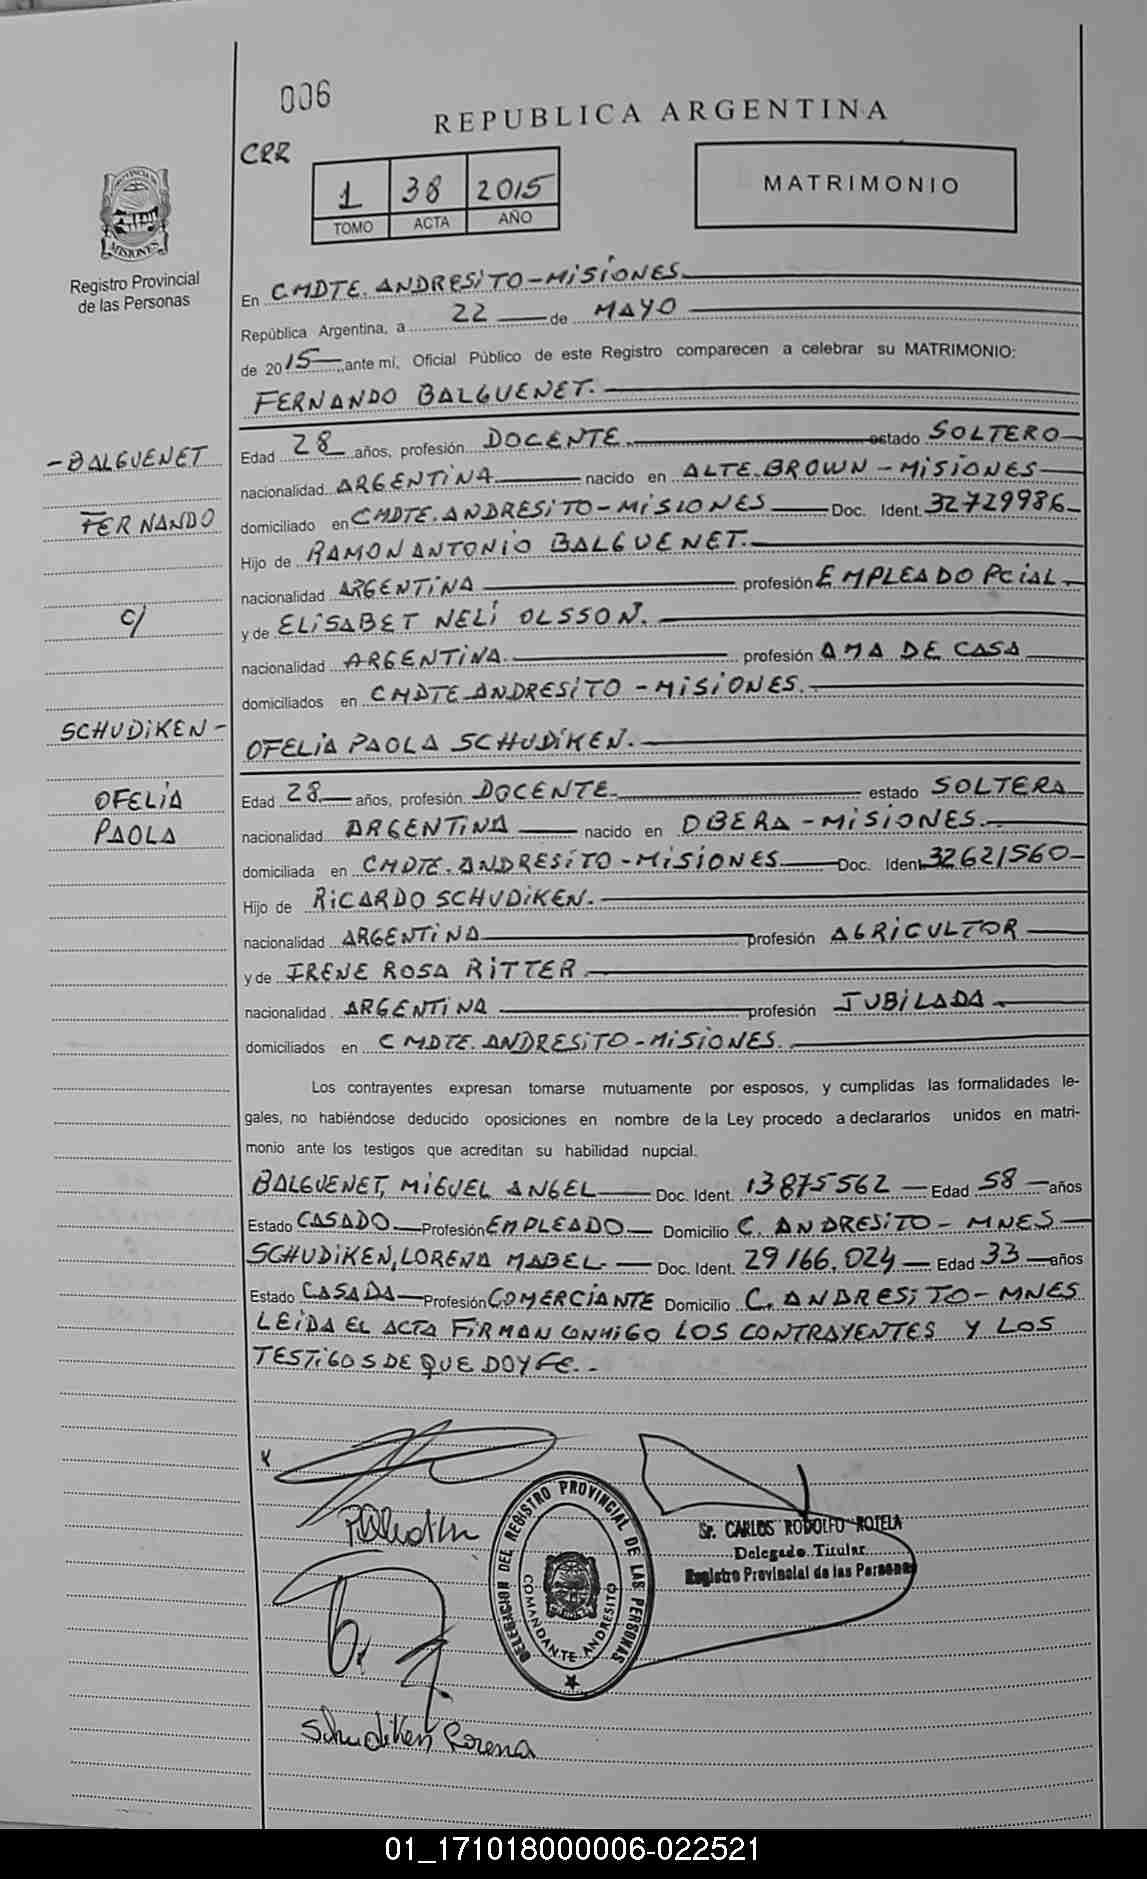 006
REPUBLICA ARGENTINA
CRR
1 38 2015
TOMO ACTA AÑO
MATRIMONIO
PROVINCIA DE
MISIONES
Registro Provincial
de las Personas
En CMDTE. ANDRESITO-MISIONES
República Argentina, a 22 de MAYO
de 2015 ante mí, Oficial Público de este Registro comparecen a celebrar su MATRIMONIO:
FERNANDO BALGUENET.
-BALGUENET
FERNANDO
c/
SCHUDIKEN-
OFELIA
PAOLA
Edad 28 años, profesión DOCENTE. estado SOLTERO
nacionalidad ARGENTINA nacido en ALTE.BROWN-MISIONES
domiciliado en CMDTE.ANDRESITO-MISIONES Doc. Ident. 32729986-
Hijo de RAMON ANTONIO BALGUENET.
nacionalidad ARGENTINA profesión EMPLEADO PCIAL
y de ELISABET NELI OLSSON.
nacionalidad ARGENTINA. profesión AMA DE CASA
domiciliados en CMDTE.ANDRESITO-MISIONES.
OFELIA PAOLA SCHUDIKEN.
Edad 28 años, profesión DOCENTE estado SOLTERA
nacionalidad ARGENTINA nacido en OBERA-MISIONES.
domiciliada en CMDTE.ANDRESITO-MISIONES Doc. Ident 32621560-
Hijo de RICARDO SCHUDIKEN.
nacionalidad ARGENTINA profesión AGRICULTOR
y de IRENE ROSA RITTER
nacionalidad ARGENTINA profesión JUBILADA
domiciliados en CMDTE.ANDRESITO-MISIONES.
Los contrayentes expresan tomarse mutuamente por esposos, y cumplidas las formalidades le-
gales, no habiéndose deducido oposiciones en nombre de la Ley procedo a declararlos unidos en matri-
monio ante los testigos que acreditan su habilidad nupcial.
BALGUENET, MIGUEL ANGEL Doc. Ident. 13875562 Edad 58 años
Estado CASADO Profesión EMPLEADO Domicilio C. ANDRESITO-MNES
SCHUDIKEN, LORENA MABEL Doc. Ident. 29166.024 Edad 33 años
Estado CASADA Profesión COMERCIANTE Domicilio C. ANDRESITO-MNES
LEIDA EL ACTA FIRMAN CONMIGO LOS CONTRAYENTES Y LOS
TESTIGOS DE QUE DOY FE.-
DELEGACION DEL REGISTRO PROVINCIAL DE LAS PERSONAS
COMANDANTE ANDRESITO
Sr. CARLOS RODOLFO ROTELA
Delegado Titular
Registro Provincial de las Personas
Schudiken Lorena
01_171018000006-022521